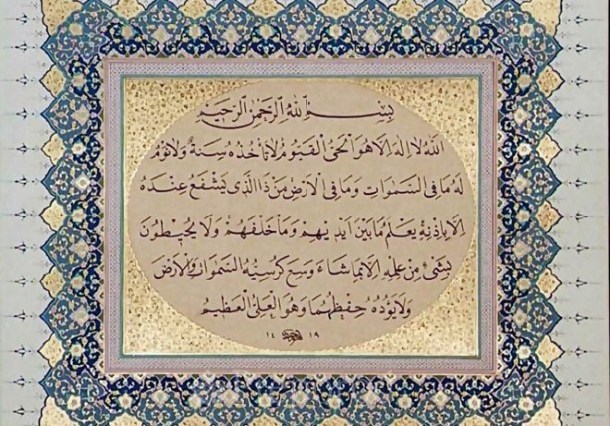 بِسْمِ اللهِ الرَّحْمٰنِ الرَّحِيمِ
اَللهُ لَا اِلٰهَ اِلَّا هُوَ الْحَيُّ الْقَيُّومُ لَا تَأْخُذُهُ سِنَةٌ وَلَا نَوْمٌ
لَهُ مَا فِي السَّمٰوَاتِ وَمَا فِي الْاَرْضِ مَنْ ذَا الَّذِي يَشْفَعُ عِنْدَهُ
اِلَّا بِاِذْنِهِ يَعْلَمُ مَا بَيْنَ اَيْدِيهِمْ وَمَا خَلْفَهُمْ وَلَا يُحِيطُونَ
بِشَيْءٍ مِنْ عِلْمِهِ اِلَّا بِمَا شَاءَ وَسِعَ كُرْسِيُّهُ السَّمٰوَاتِ وَالْاَرْضَ
وَلَا يَؤُدُهُ حِفْظُهُمَا وَهُوَ الْعَلِيُّ الْعَظِيمُ
١٤١٩